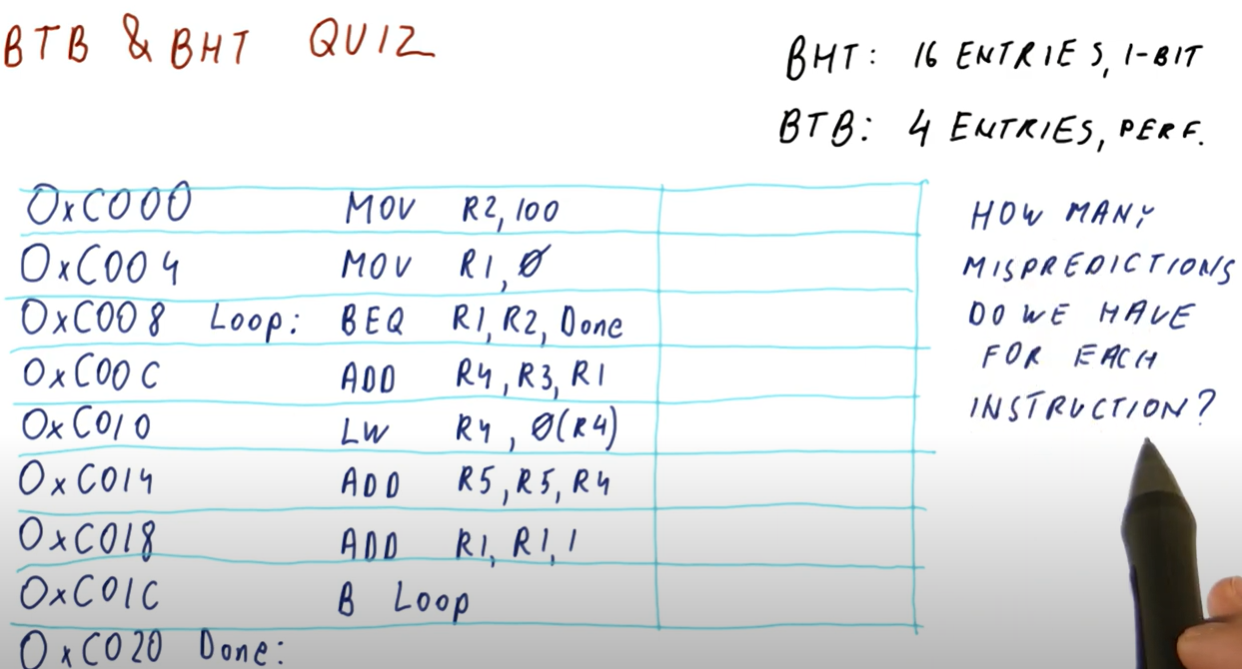 BTB & BHT QUIZ
BHT: 16 ENTRIES, 1-BIT
BTB: 4 ENTRIES, PERF.
0xC000 MOV R2, 100
0xC004 MOV R1, 0
0xC008 Loop: BEQ R1, R2, Done
0xC00C ADD R4, R3, R1
0xC010 LW R4, 0(R4)
0xC014 ADD R5, R5, R4
0xC018 ADD R1, R1, 1
0xC01C B Loop
0xC020 Done:
HOW MANY
MISPREDICTIONS
DO WE HAVE
FOR EACH
INSTRUCTION?